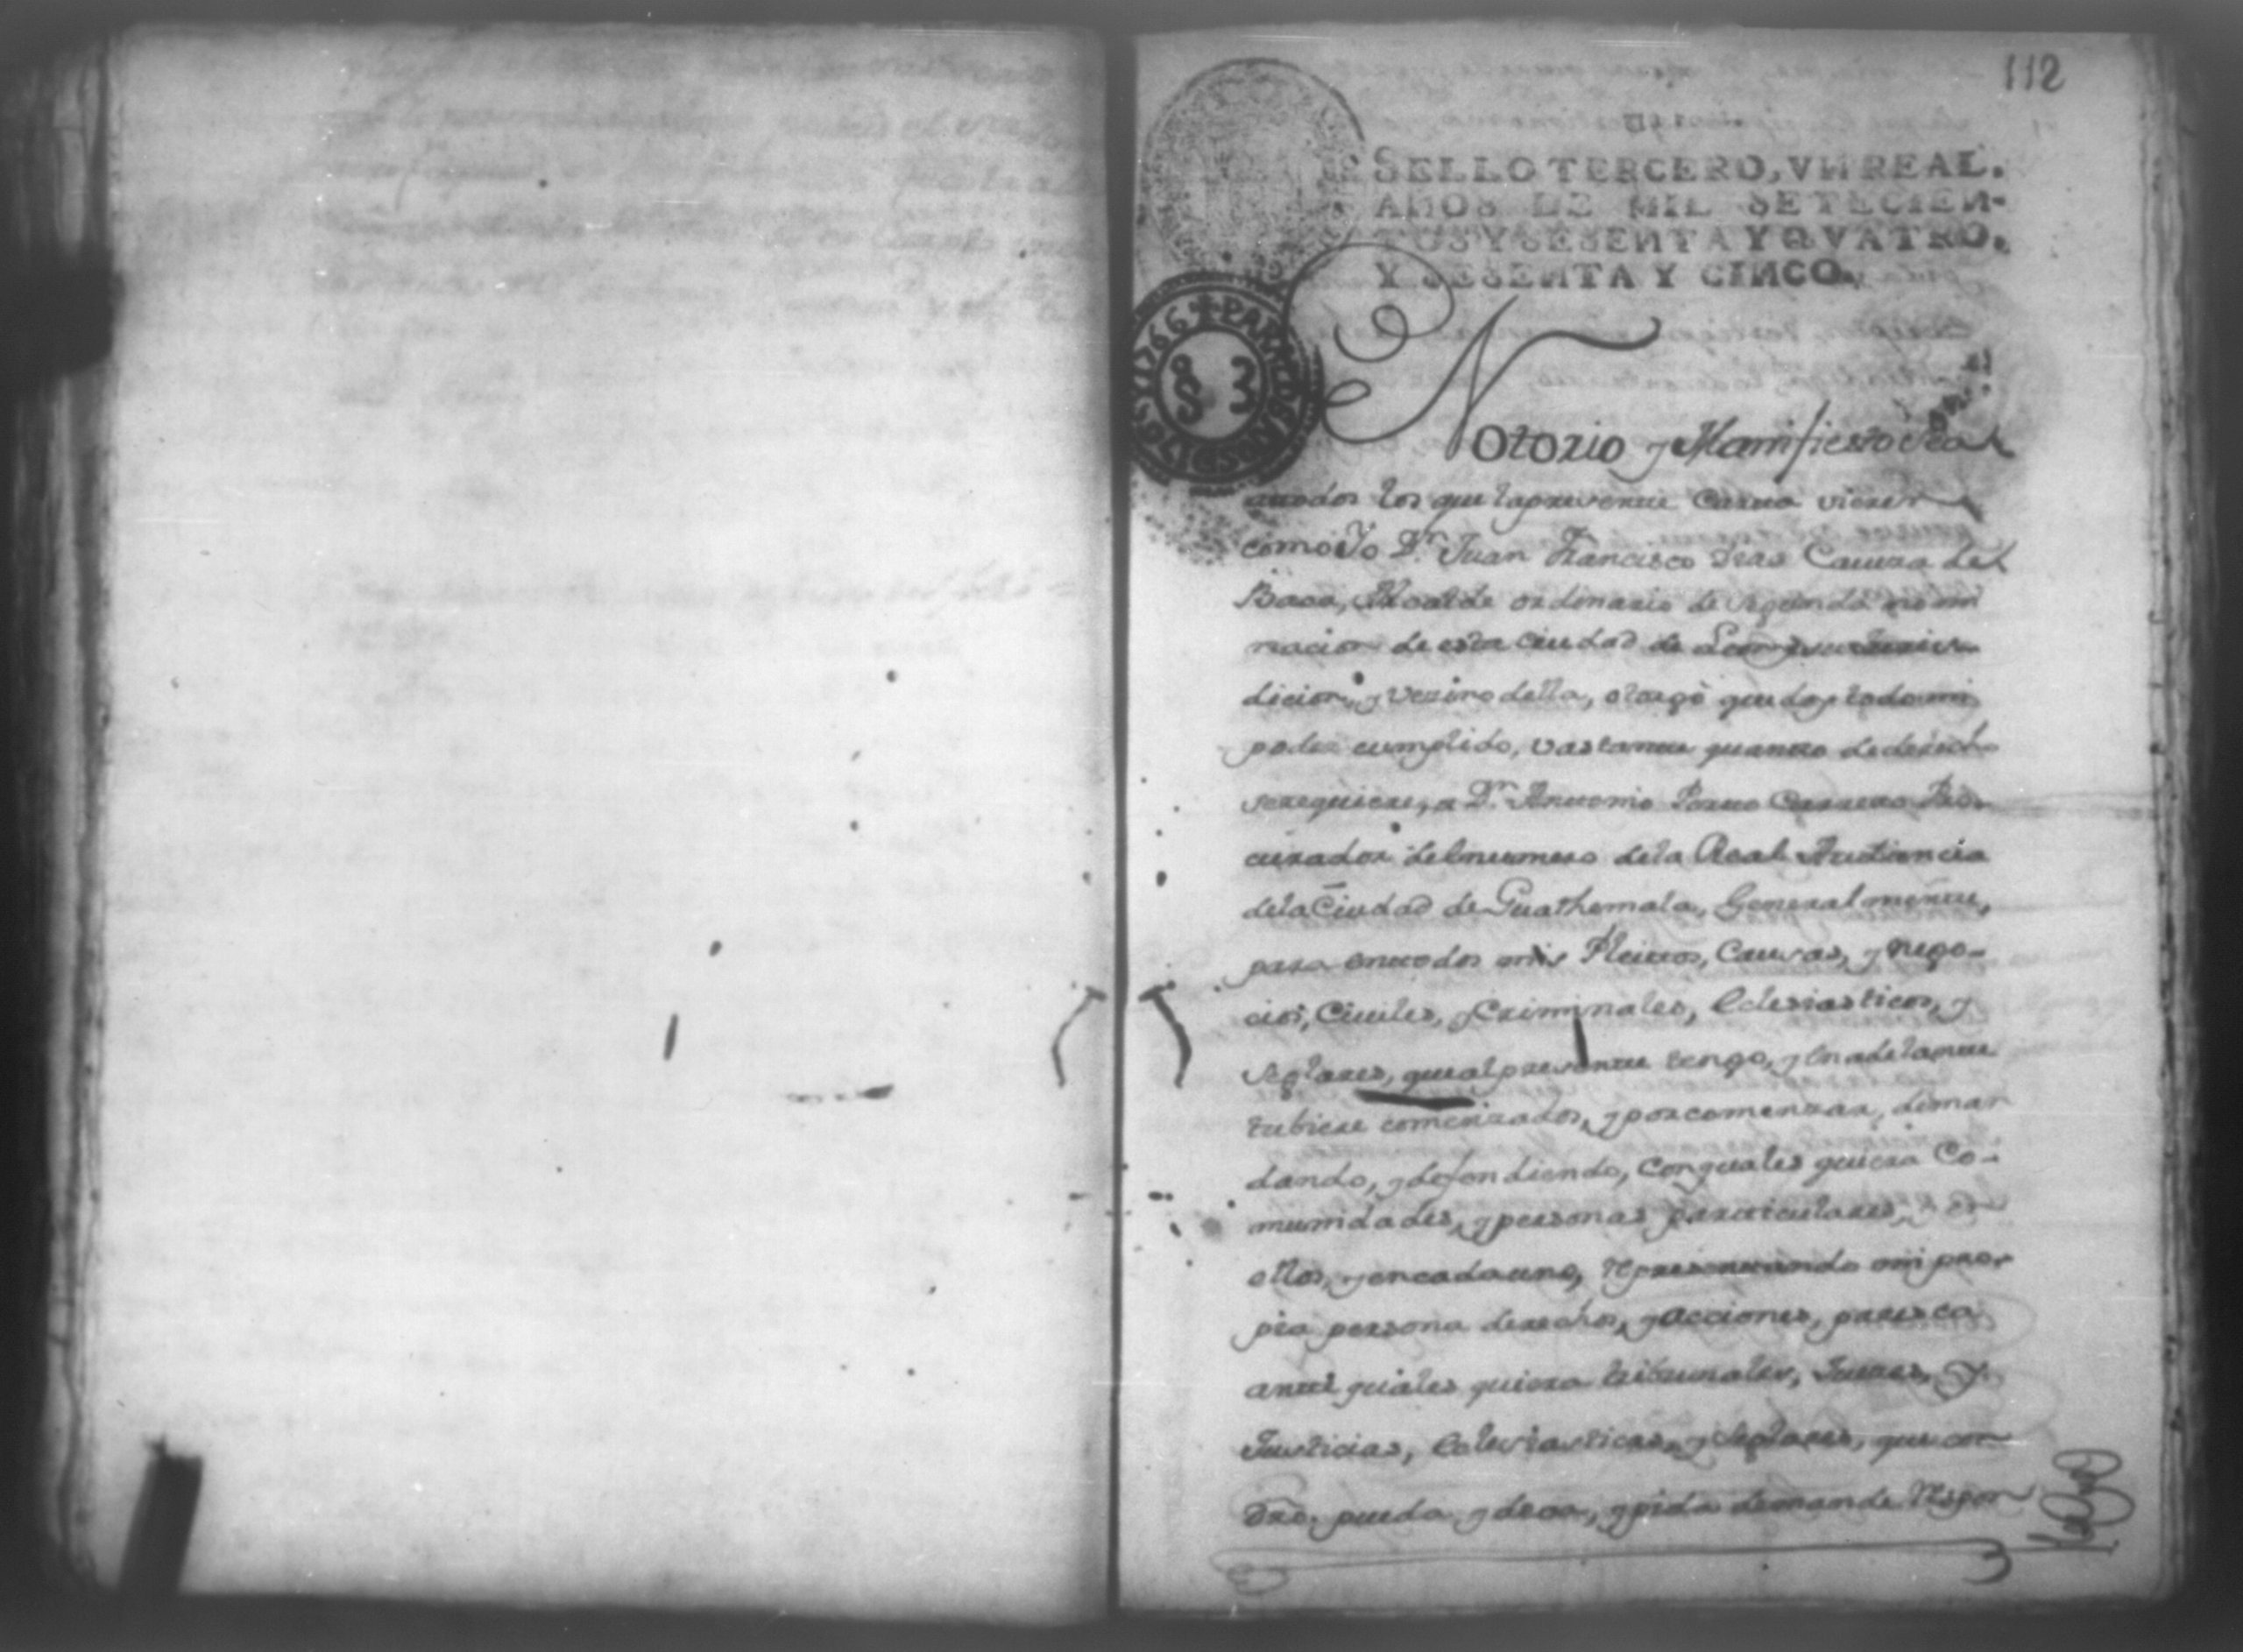 112
SELLO TERCERO, VN REAL.
AÑOS DE MIL SETECIEN-
TOS Y SESENTA Y QVATRO,
Y SESENTA Y CINCO.
1766 PARA LOS
S 3
Notorio y Manifiesto sea
atodos los que lapresente Carta vieren
como Yo Dn. Juan Francisco Dias Cavesa de
Baca, Alcalde ordinario de segunda nomi
nacion de esta ciudad de Leon y su Juris
dicion, y Vezino della, otorgo que doy todo mi
poder cumplido, vastante quanto de derecho
serequiere, a Dn. Antonio Porto Carrero Pro-
curador del numero dela Real Audiencia
dela Ciudad de Guathemala, Generalmente,
para entodos mis Pleitos, Causas, y nego-
cios, Civiles, y Criminales, Eclesiasticos, y
Seglares, que al presente tengo, y en adelante
tubiere comenzados, y por comenzar, deman
dando, y defendiendo, con quales quiera Co-
munidades, y personas particulares, en
ellos, y encadauno, representando mi pro-
pia persona derechos, y acciones, paresca
ante quales quiera tribunales, Jueses, y
Justicias, Eclesiasticas, y Seglares, que con
dro. pueda y deva, y pida demande Respon